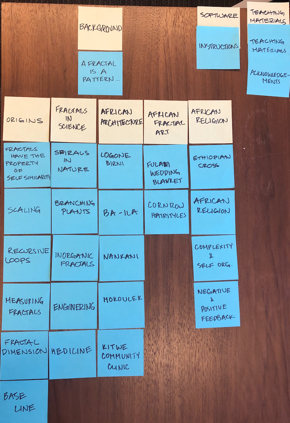 BACKGROUND
A FRACTAL
IS A
PATTERN...
SOFTWARE
INSTRUCTIONS
TEACHING
MATERIALS
TEACHING
MATERIALS
ACKNOWLEDGE-
MENTS
ORIGINS
FRACTALS
HAVE THE
PROPERTY
OF SELF SIMILARITY
SCALING
RECURSIVE
LOOPS
MEASURING
FRACTALS
FRACTAL
DIMENSION
BASE
LINE
FRACTALS
IN
SCIENCE
SPIRALS
IN
NATURE
BRANCHING
PLANTS
INORGANIC
FRACTALS
ENGINEERING
MEDICINE
AFRICAN
ARCHITECTURE
LOGONE
BIRNI
BA-ILA
NANKANI
MOKOULEK
KITWE
COMMUNITY
CLINIC
AFRICAN
FRACTAL
ART
FULANI
WEDDING
BLANKET
CORNROW
HAIRSTYLES
AFRICAN
RELIGION
ETHIOPIAN
CROSS
AFRICAN
RELIGION
COMPLEXITY
&
SELF ORG.
NEGATIVE
&
POSITIVE
FEEDBACK